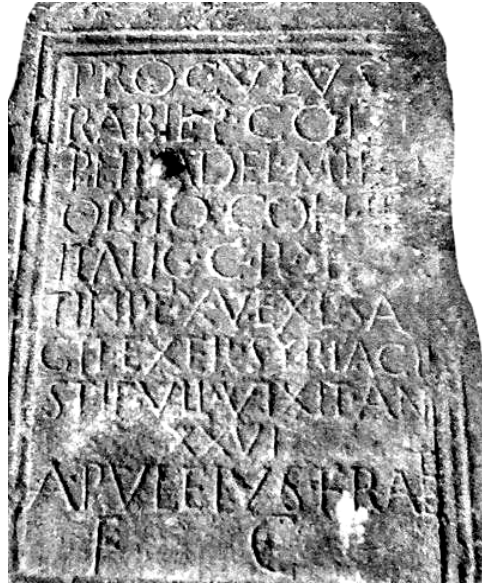 PROCULUS
RABILI F COL
PHILADEL MIL
OPTIO COH II
ITALIC C R
TINI EX VEXIL SA
GIT EXER SYRIACI
STIP VII VIXIT AN
XXVI
APULEIUS FRATE
F C